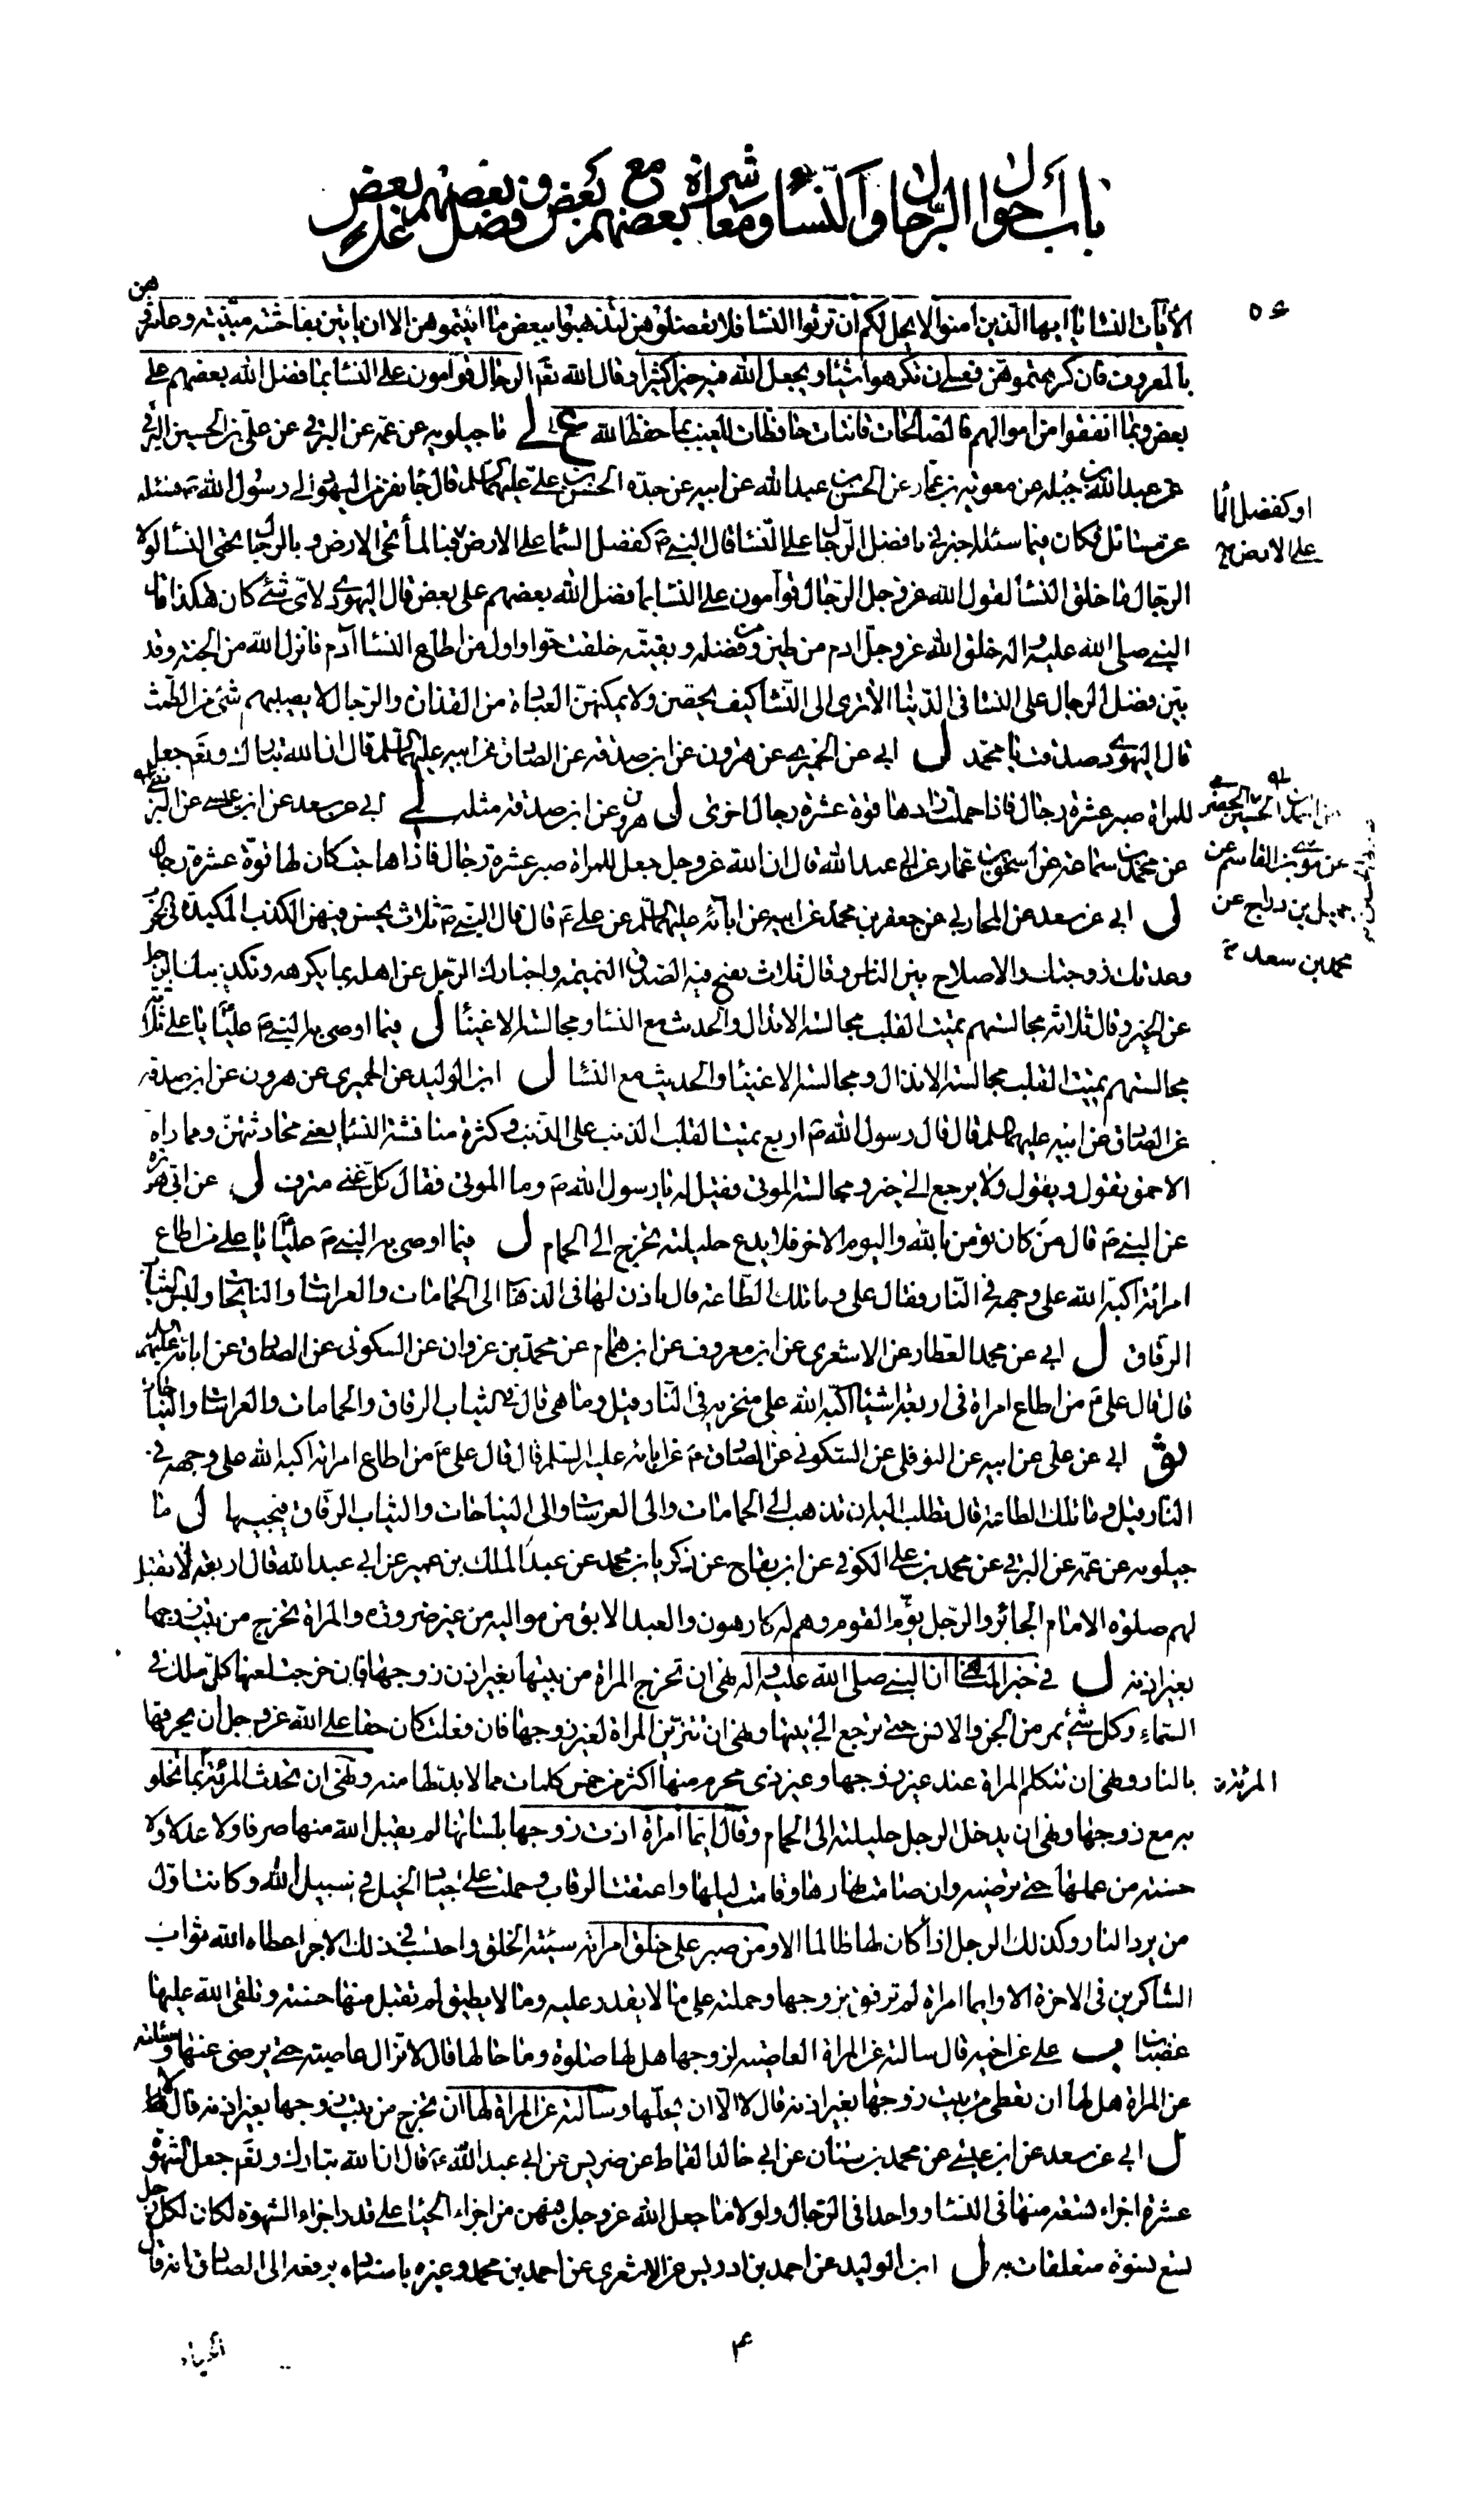 باب أحوال الرجال والنساء ومعاشرة بعضهم مع بعض وفضل بعضهم على بعض
الآيات النساء يا ايها الذين امنوا لا يحل لكم ان ترثوا النساء فلا تعضلوهن لتذهبوا ببعض ما اتيتموهن الا ان ياتين بفاحشة مبينة وعاشروهن
بالمعروف فان كرهتموهن فعسى ان تكرهوا شيئا ويجعل الله فيه خيرا كثيرا وقال الله تعم الرجال قوامون على النساء بما فضل الله بعضهم على
بعض وبما انفقوا من اموالهم فالصالحات قانتات حافظات للغيب بما حفظ الله ع لى ماجيلويه عن عمه عن البرقي عن علي بن الحسين البرقي
عن عبد الله بن جبلة عن معوية بن عمار عن الحسن بن عبد الله عن ابيه عن جده الحسن بن علي عليهما السلم قال جاء نفر من اليهود الى رسول الله ص فسئله
عن مسائل فكان فيما سئله اخبرني ما فضل الرجال على النساء قال النبي ص كفضل السماء على الارض فبالماء تحيى الارض وبالرجال تحيى النساء لولا
الرجال ما خلق النساء لقول الله عز وجل الرجال قوامون على النساء بما فضل الله بعضهم على بعض قال اليهودي لاي شئ كان هكذا قال
النبي صلى الله عليه واله خلق الله عز وجل ادم من طين ومن فضله وبقيته خلقت حوا واول من اطاع النساء آدم فانزل الله من الجنة وقد
بين فضل الرجال على النساء في الدنيا الا ترى الى النساء كيف يحضن ولا يمكنهن العبادة من القذارة والرجال لا يصيبهم شئ من الطمث
قال اليهودي صدقت يا محمد ل ابي عن الحميري عن هرون عن ابن صدقة عن الصادق عن ابيه عليهما السلم قال ان الله تبارك وتعم جعل
للمراة صبر عشرة رجال فاذا حملت زادها قوة عشرة رجال اخرى ل هرون عن ابن صدقة مثله ل ابي عن سعد عن ابن عيسى عن البزنطي
عن محمد بن سماعة عن اسحق بن عمار عن ابي عبد الله قال ان الله عز وجل جعل للمراة صبر عشرة رجال فاذا هاجت كان لها قوة عشرة رجال
ل ابي عن سعد عن المحاربي عن جعفر بن محمد عن ابيه عن ابائه عليهم السلم عن علي ع قال قال النبي ص ثلاث يحسن فيهن الكذب المكيدة في الحرب
وعدتك زوجتك والاصلاح بين الناس وقال ثلاث يقبح فيه الصدق النميمة واخبارك الرجل عن اهله بما يكرهه وتكذيبك الرجل
عن الخبر وقال ثلاثة مجالستهم تميت القلب مجالسة الانذال والحديث مع النساء ومجالسة الاغنياء ل فيما اوصى به النبي ص عليا يا علي ثلاثة
مجالستهم تميت القلب مجالسة الانذال ومجالسة الاغنياء والحديث مع النساء ل ابن الوليد عن الحميري عن هرون عن ابن صدقة
عن الصادق عن ابيه عليهما السلم قال قال رسول الله ص اربع يمتن القلب الذنب على الذنب وكثرة مناقشة النساء يعني محادثتهن ومماراة
الاحمق تقول ويقول ولا يرجع الى خير ومجالسة الموتى فقيل له يا رسول الله ص وما الموتى فقال كل غني مترف ل عن ابي هريرة
عن النبي ص قال من كان يؤمن بالله واليوم الاخر فلا يدع حليلته تخرج الى الحمام ل فيما اوصى به النبي ص عليا يا علي من اطاع
امراته اكبه الله على وجهه في النار فقال علي وما تلك الطاعة قال ياذن لها في الذهاب الى الحمامات والعرسات والنايحات ولبس الثياب
الرقاق ل ابي عن محمد العطار عن الاشعري عن ابن معروف عن ابن همام عن محمد بن غزوان عن السكوني عن الصادق عن ابائه عليهم السلم
قال قال علي ع من اطاع امراة في اربعة اشياء اكبه الله على منخريه في النار قيل وما هي قال في الثياب الرقاق والحمامات والعرسات والنياحات
ثو ابي عن علي عن ابيه عن النوفلي عن السكوني عن الصادق ع عن ابائه عليه السلم قال قال علي ع من اطاع امراته اكبه الله على وجهه في
النار قيل وما تلك الطاعة قال تطلب اليه ان تذهب الى الحمامات والى العرسات والى النياحات والثياب الرقاق فيجيبها ل ما
جيلويه عن عمه عن البرقي عن محمد بن علي الكوفي عن ابن بقاح عن زكريا بن محمد عن عبد الملك بن عمير عن ابي عبد الله قال اربعة لا تقبل
لهم صلوة الامام الجائر والرجل يؤم القوم وهم له كارهون والعبد الابق من مواليه من غير ضرورة والمراة تخرج من بيت زوجها
بغير اذنه ل في خبر المناهي ان النبي صلى الله عليه واله نهى ان تخرج المراة من بيتها بغير اذن زوجها فان خرجت لعنها كل ملك في
السماء وكل شئ تمر من الجن والانس حتى ترجع الى بيتها ونهى ان تتزين المراة لغير زوجها فان فعلت كان حقا على الله عز وجل ان يحرقها
بالنار ونهى ان تتكلم المراة عند غير زوجها وغير ذي محرم منها اكثر من خمس كلمات مما لا بد لها منه ونهى ان تحدث المرئة بما تخلو
به مع زوجها ونهى ان يدخل الرجل حليلته الى الحمام وقال ايما امراة اذت زوجها بلسانها لم يقبل الله منها صرفا ولا عدلا ولا
حسنة من عملها حتى ترضيه وان صامت نهارها وقامت ليلها واعتقت الرقاب وحملت على جياد الخيل في سبيل الله وكانت اول
من يرد النار وكذلك الرجل اذا كان لها ظالما الا ومن صبر على خلق امراته سيئة الخلق واحتسب في ذلك الاجر اعطاه الله ثواب
الشاكرين في الاخرة الا وايما امراة لم ترفق بزوجها وحملته على ما لا يقدر عليه وما لا يطيق لم تقبل منها حسنة وتلقى الله عليها
غضبان ب علي عن اخيه قال سالته عن المراة العاصية لزوجها هل لها صلوة وما حالها قال لا تزال عاصية حتى يرضى عنها وسئلته
عن المراة هل لها ان تعطي من بيت زوجها بغير اذنه قال لا الا ان يحلها وسالته عن المراة لها ان تخرج من بيت زوجها بغير اذنه قال لا
ل ابي عن سعد عن ابن عيسى عن محمد بن سنان عن ابي خالد القماط عن ضريس عن ابي عبد الله ع قال ان الله تبارك وتعم جعل الشهوة
عشرة اجزاء تسعة منها في النساء وواحدا في الرجال ولولا ما جعل الله عز وجل فيهن من اجزاء الحياء على قدر اجزاء الشهوة لكان لكل رجل
تسع نسوة متعلقات به ل ابن الوليد عن احمد بن ادريس عن الاشعري عن احمد بن محمد وغيره باسناده يرفعه الى الصادق انه قال
او كفضل الماء
على الارض
عن موسى بن القاسم عن
جميل بن دراج عن
محمد بن سعد
المرئة